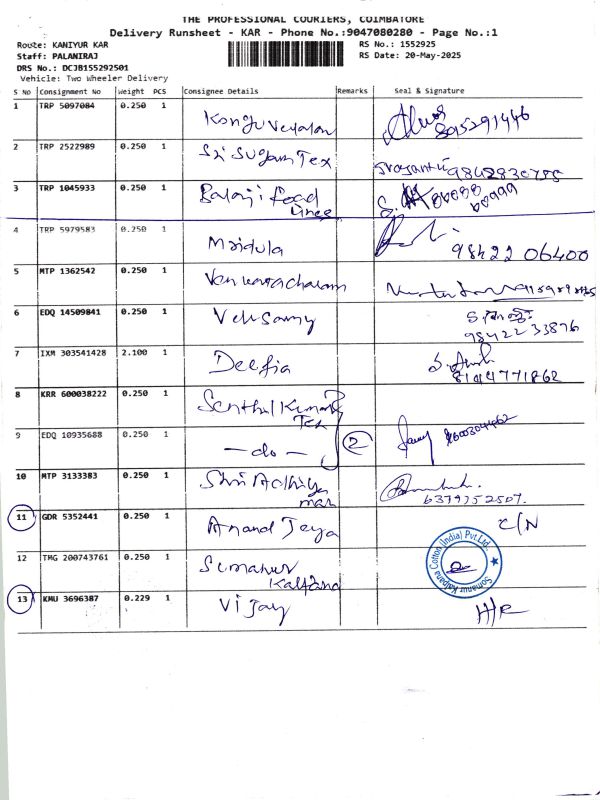 THE PROFESSIONAL COURIERS, COIMBATORE
Delivery Runsheet - KAR - Phone No.:9047080280 - Page No.:1
Route: KANIYUR KAR
RS No.: 1552925
Staff: PALANIRAJ
RS Date: 20-May-2025
DRS No.: DCJB155292501
Vehicle: Two Wheeler Delivery
S No Consignment No Weight PCS Consignee Details Remarks Seal & Signature
1 TRP 5097084 0.250 1 Konguvelalan
8095291446
2 TRP 2522989 0.250 1 Sri Sugam Tex
3 TRP 1045933 0.250 1 Balaji Food
Linee
4 TRP 5979583 0.250 1 Mridula 98422 06400
5 MTP 1362542 0.250 1
6 EDQ 14509841 0.250 1 Velusamy
98422 33876
7 IXM 303541428 2.100 1 Delfia
8144771862
8 KRR 600038222 0.250 1 Senthil Kumaran
Tex
9 EDQ 10935688 0.250 1 - do - 2 8600304462
10 MTP 3133383 0.250 1 Shri Adhiya
man 6379752507.
11 GDR 5352441 0.250 1 Anand Jeya C/N
12 TMG 200743761 0.250 1 Somanur
Kalpana
Somanur Kalpana Cotton (India) Pvt Ltd.
13 KMU 3696387 0.229 1 Vijay